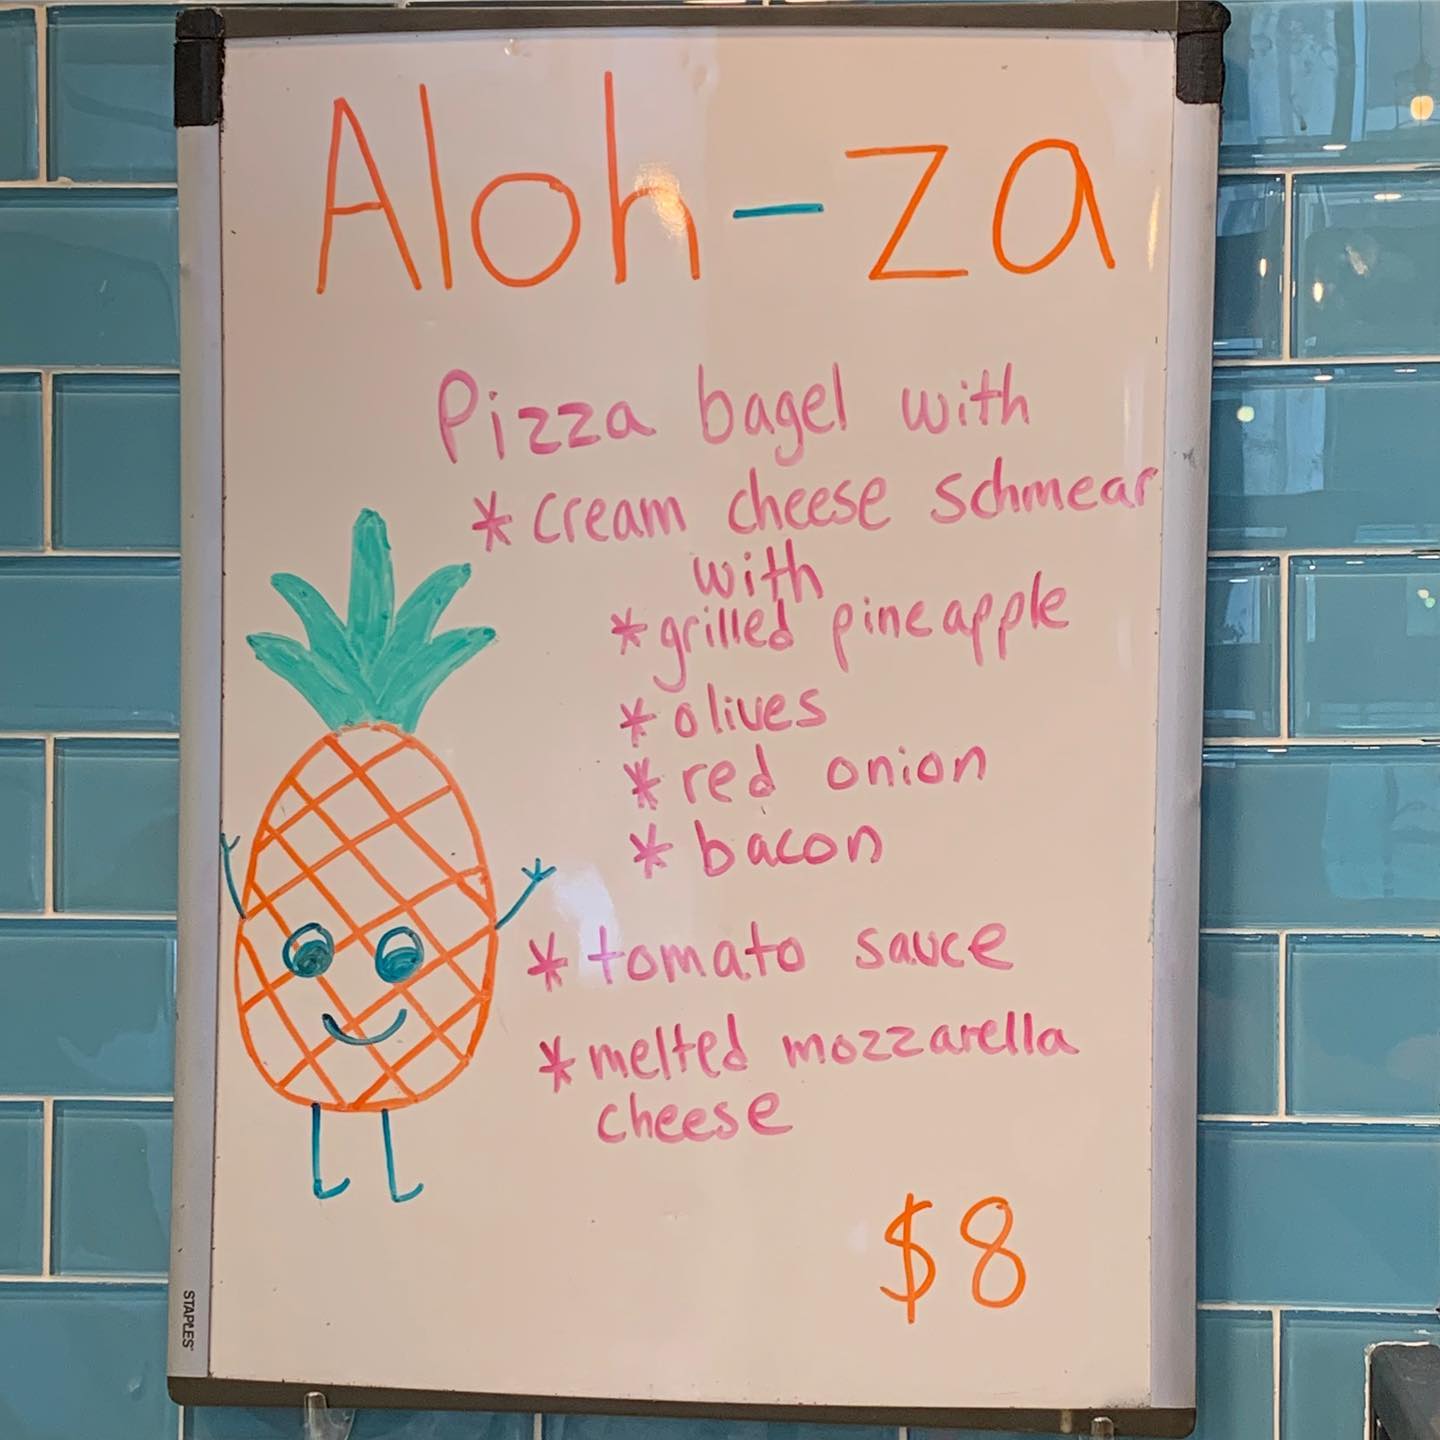 Aloh-za
Pizza bagel with
* cream cheese schmear
with
* grilled pineapple
* olives
* red onion
* bacon
* tomato sauce
* melted mozzarella
cheese
$8
STAPLES